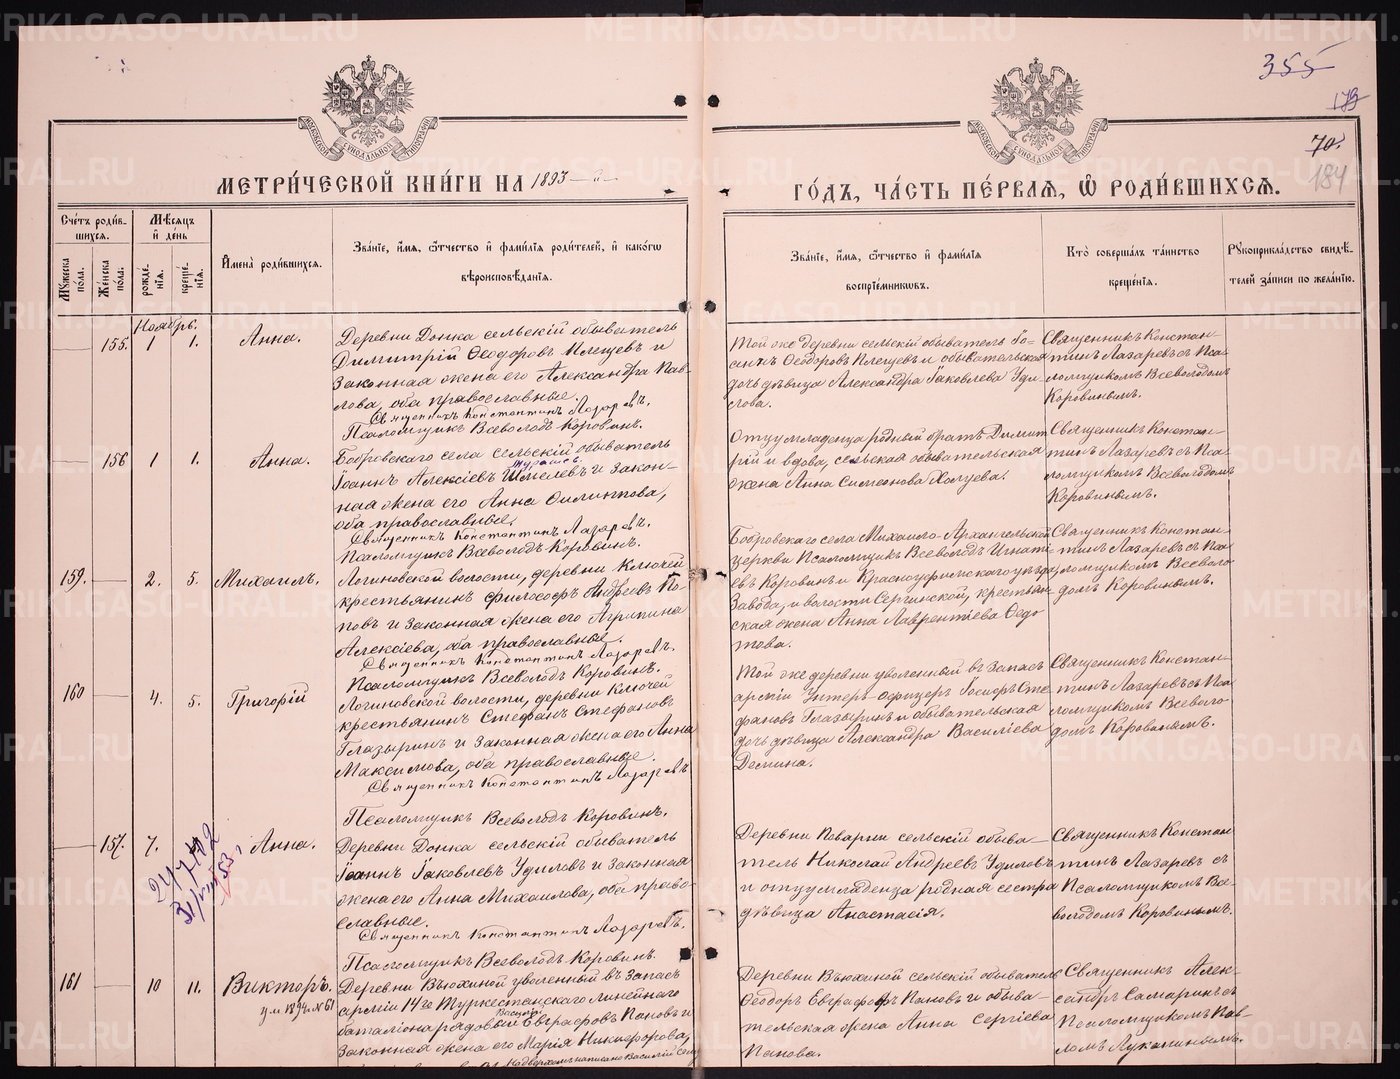 355
179
70.
184
МЕТРИ́ЧЕСКОЙ КНИ́ГИ НА 1893
ГО́ДЪ, ЧА́СТЬ ПЕ́РВАЯ, Ѡ҆ РОДИ́ВШИХСЯ.
Сче́тъ роди́в-
шихся.
Му́жеска по́ла.
Же́нска по́ла.
Мѣ́сяцъ
и҆ де́нь
рожде́-
нїя.
креще́-
нїя.
И҆мена̀ роди́вшихся.
Зва́нїе, и҆́мя, ѻ҆́тчество и҆ фами́лїя роди́телей, и҆ како́гѡ
вѣроисповѣ́данїя.
Зва́нїе, и҆́мя, ѻ҆́тчество и҆ фами́лїя
воспрїе́мниковъ.
Кто̀ соверша́лъ та́инство
креще́нїя.
Рꙋкоприкла́дство свидѣ́-
телей за́писи по жела́нїю.
Ноябрь.
155. 1 1. Анна.
Деревни Донка сельскій обыватель
Димитрій Ѳеодоровъ Плещевъ и
законная жена его Александра Пав-
лова, оба православные.
Священникъ Константинъ Лазаревъ.
Псаломщикъ Всеволодъ Коровинъ.
Той же деревни сельскій обыватель Іо-
аннъ Ѳеодоровъ Плещевъ и обывательская
дочь дѣвица Александра Іаковлева Уди-
лова.
Священникъ Констан-
тинъ Лазаревъ съ Пса-
ломщикомъ Всеволодомъ
Коровинымъ.
156 1 1. Анна.
Бобровскаго села сельскій обыватель
Іоаннъ Алексіевъ Шмелевъ и закон-
ная жена его Анна Филиппова,
оба православные.
Священникъ Константинъ Лазаревъ.
Псаломщикъ Всеволодъ Коровинъ.
Отцу младенца родный братъ Димит
рій и вдова, сельская обывательская
жена Анна Симеонова
Священникъ Констан-
тинъ Лазаревъ съ Пса-
ломщикомъ Всеволодомъ
Коровинымъ.
159. 2. 5. Михаилъ.
Логиновской волости, деревни Ключей
крестьянинъ Философъ Андреевъ По-
повъ и законная жена его Агрипина
Алексіева, оба православные.
Священникъ Константинъ Лазаревъ.
Псаломщикъ Всеволодъ Коровинъ.
Бобровскаго села Михаило-Архангельской
церкви Псаломщикъ Всеволодъ Игнаті
евъ Коровинъ и Красноуфимскаго уѣзда
Завода, и волости Сергинской, крестьян
ская жена Анна Лаврентіева Ѳедо
това.
Священникъ Констан-
тинъ Лазаревъ съ Пса-
ломщикомъ Всеволо-
домъ Коровинымъ.
160 4. 5. Григорій
Логиновской волости, деревни Ключей
крестьянинъ Стефанъ Стефановъ
Глазыринъ и законная жена его Анна
Максимова, оба православные.
Священникъ Константинъ Лазаревъ
Псаломщикъ Всеволодъ Коровинъ.
Той же деревни уволенный въ запасъ
арміи Унтеръ-офицеръ Іосифъ Сте
фановъ Глазыринъ и обывательская
дочь дѣвица Александра Василіева
Демина.
Священникъ Констан-
тинъ Лазаревъ съ Пса-
ломщикомъ Всеволо-
домъ Коровинымъ.
157. 7. Анна.
Деревни Донка сельскій обыватель
Іоаннъ Іаковлевъ Удиловъ и законная
жена его Анна Михаилова, оба право-
славные.
Священникъ Константинъ Лазаревъ.
Псаломщикъ Всеволодъ Коровинъ.
Деревни Поварни сельскій обыва-
тель Николай Андреевъ Удиловъ
и отцу младенца родная сестра
дѣвица Анастасія.
Священникъ Констан
тинъ Лазаревъ съ
Псаломщикомъ Все-
володомъ Коровинымъ.
161 10 11. Викторъ.
ум 1894 г. № 61
Деревни Вьюхиной уволенный въ запасъ
арміи 14го Туркестанскаго линейнаго
Василій
баталіона рядовый Евграфовъ Пановъ и
законная жена его Марія Никифорова,
Надверхомъ написано Василій
Деревни Вьюхиной сельскій обыватель
Ѳеодоръ Евграфовъ Пановъ и обыва-
тельская жена Анна Сергіева
Панова.
Священникъ Алек-
сандръ Самаринъ съ
Псаломщикомъ Пав-
ломъ Лукинымъ.
METRIKI.GASO-URAL.RU